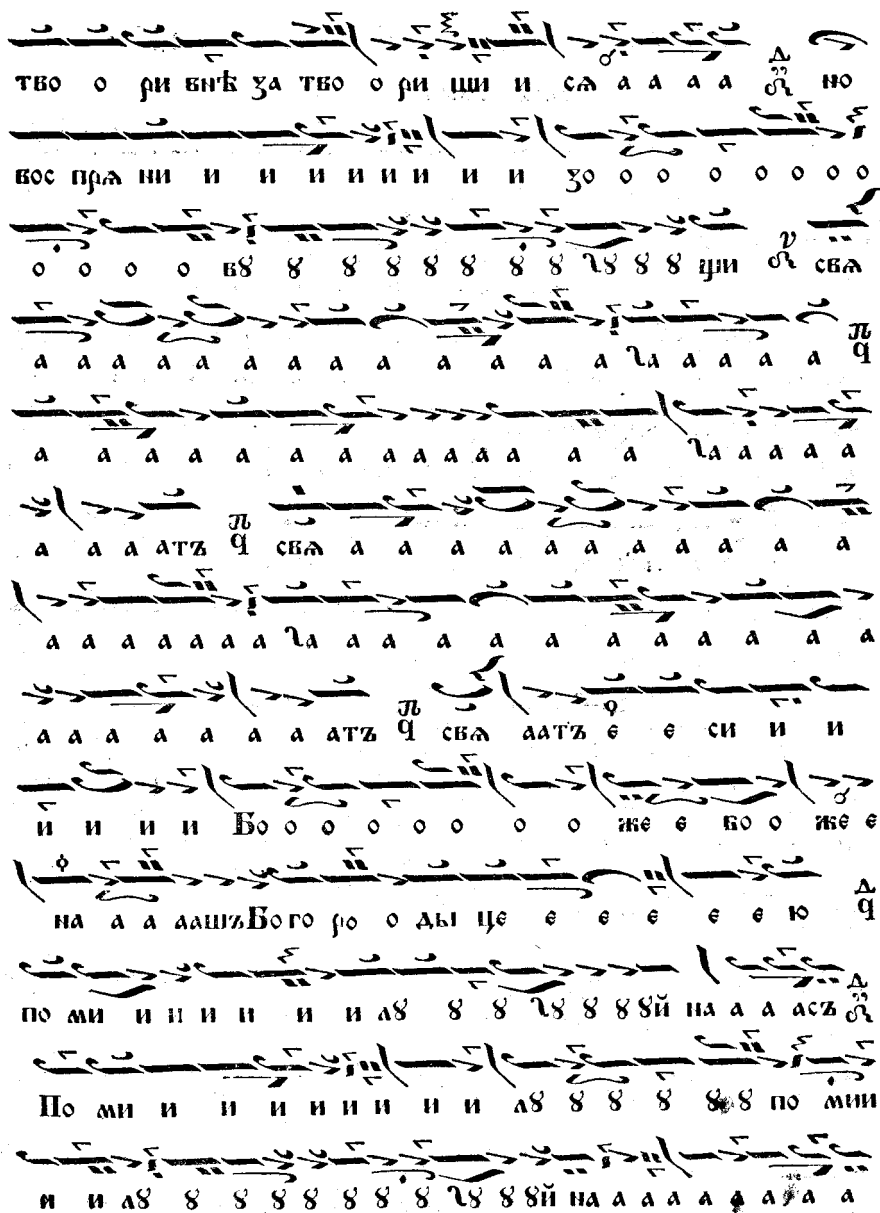 тво о ри внѣ за тво о ри ши и сѧ а а а а но
вос прѧ ни и и и и и и и зо о о о о о о о
о о о о вꙋ ꙋ ꙋ ꙋ ꙋ ꙋ ꙋ ꙋ ꙋ гꙋ ꙋ ꙋ щи свѧ
а а а а а а а а а а а а а га а а а а
а а а а а а а а а а а а а га а а а а
а а а атъ свѧ а а а а а а а а а а а
а а а а а а а га а а а а а а а а а а
а а а а а а а атъ свѧ аатъ е е си и и
и и и и Бо о о о о о о о же е во о же е
на а а аашъ Бого ро о ды це е е е е е ю
по ми и и и и и и лꙋ ꙋ ꙋ гꙋ ꙋ ꙋ ꙋй на а а асъ
По ми и и и и и и и лꙋ ꙋ ꙋ ꙋ ꙋ ꙋ по мии
и и лꙋ ꙋ ꙋ ꙋ ꙋ ꙋ ꙋ ꙋ гꙋ ꙋ ꙋй на а а а а а а а